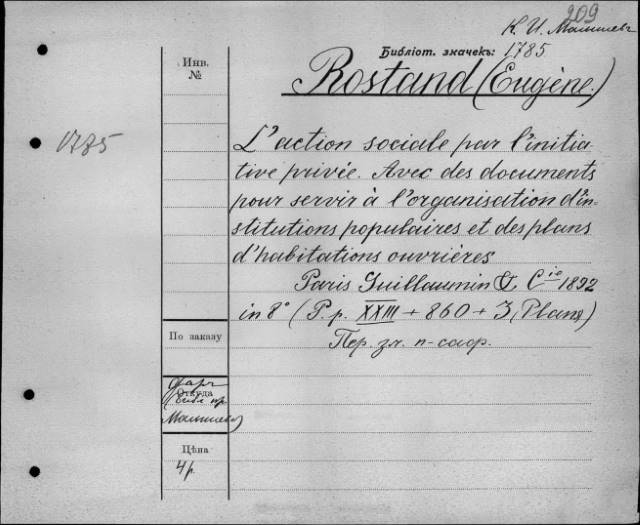 209
К. И. Малышев
Библіот. значекъ: 1785.
Инв.
№
Rostand (Eugène.)
1785
L'action sociale par l'initia-
tive privée. Avec des documents
pour servir à l'organisation d'in-
stitutions populaires et des plans
d'habitations ouvrières
Paris Guillaumin & Cie 1892
in 8° (P.p. XXIII + 860 + 3 Plans)
По заказу
Пер. зл. п-саф.
Откуда
Малышева)
Цѣна
4 р